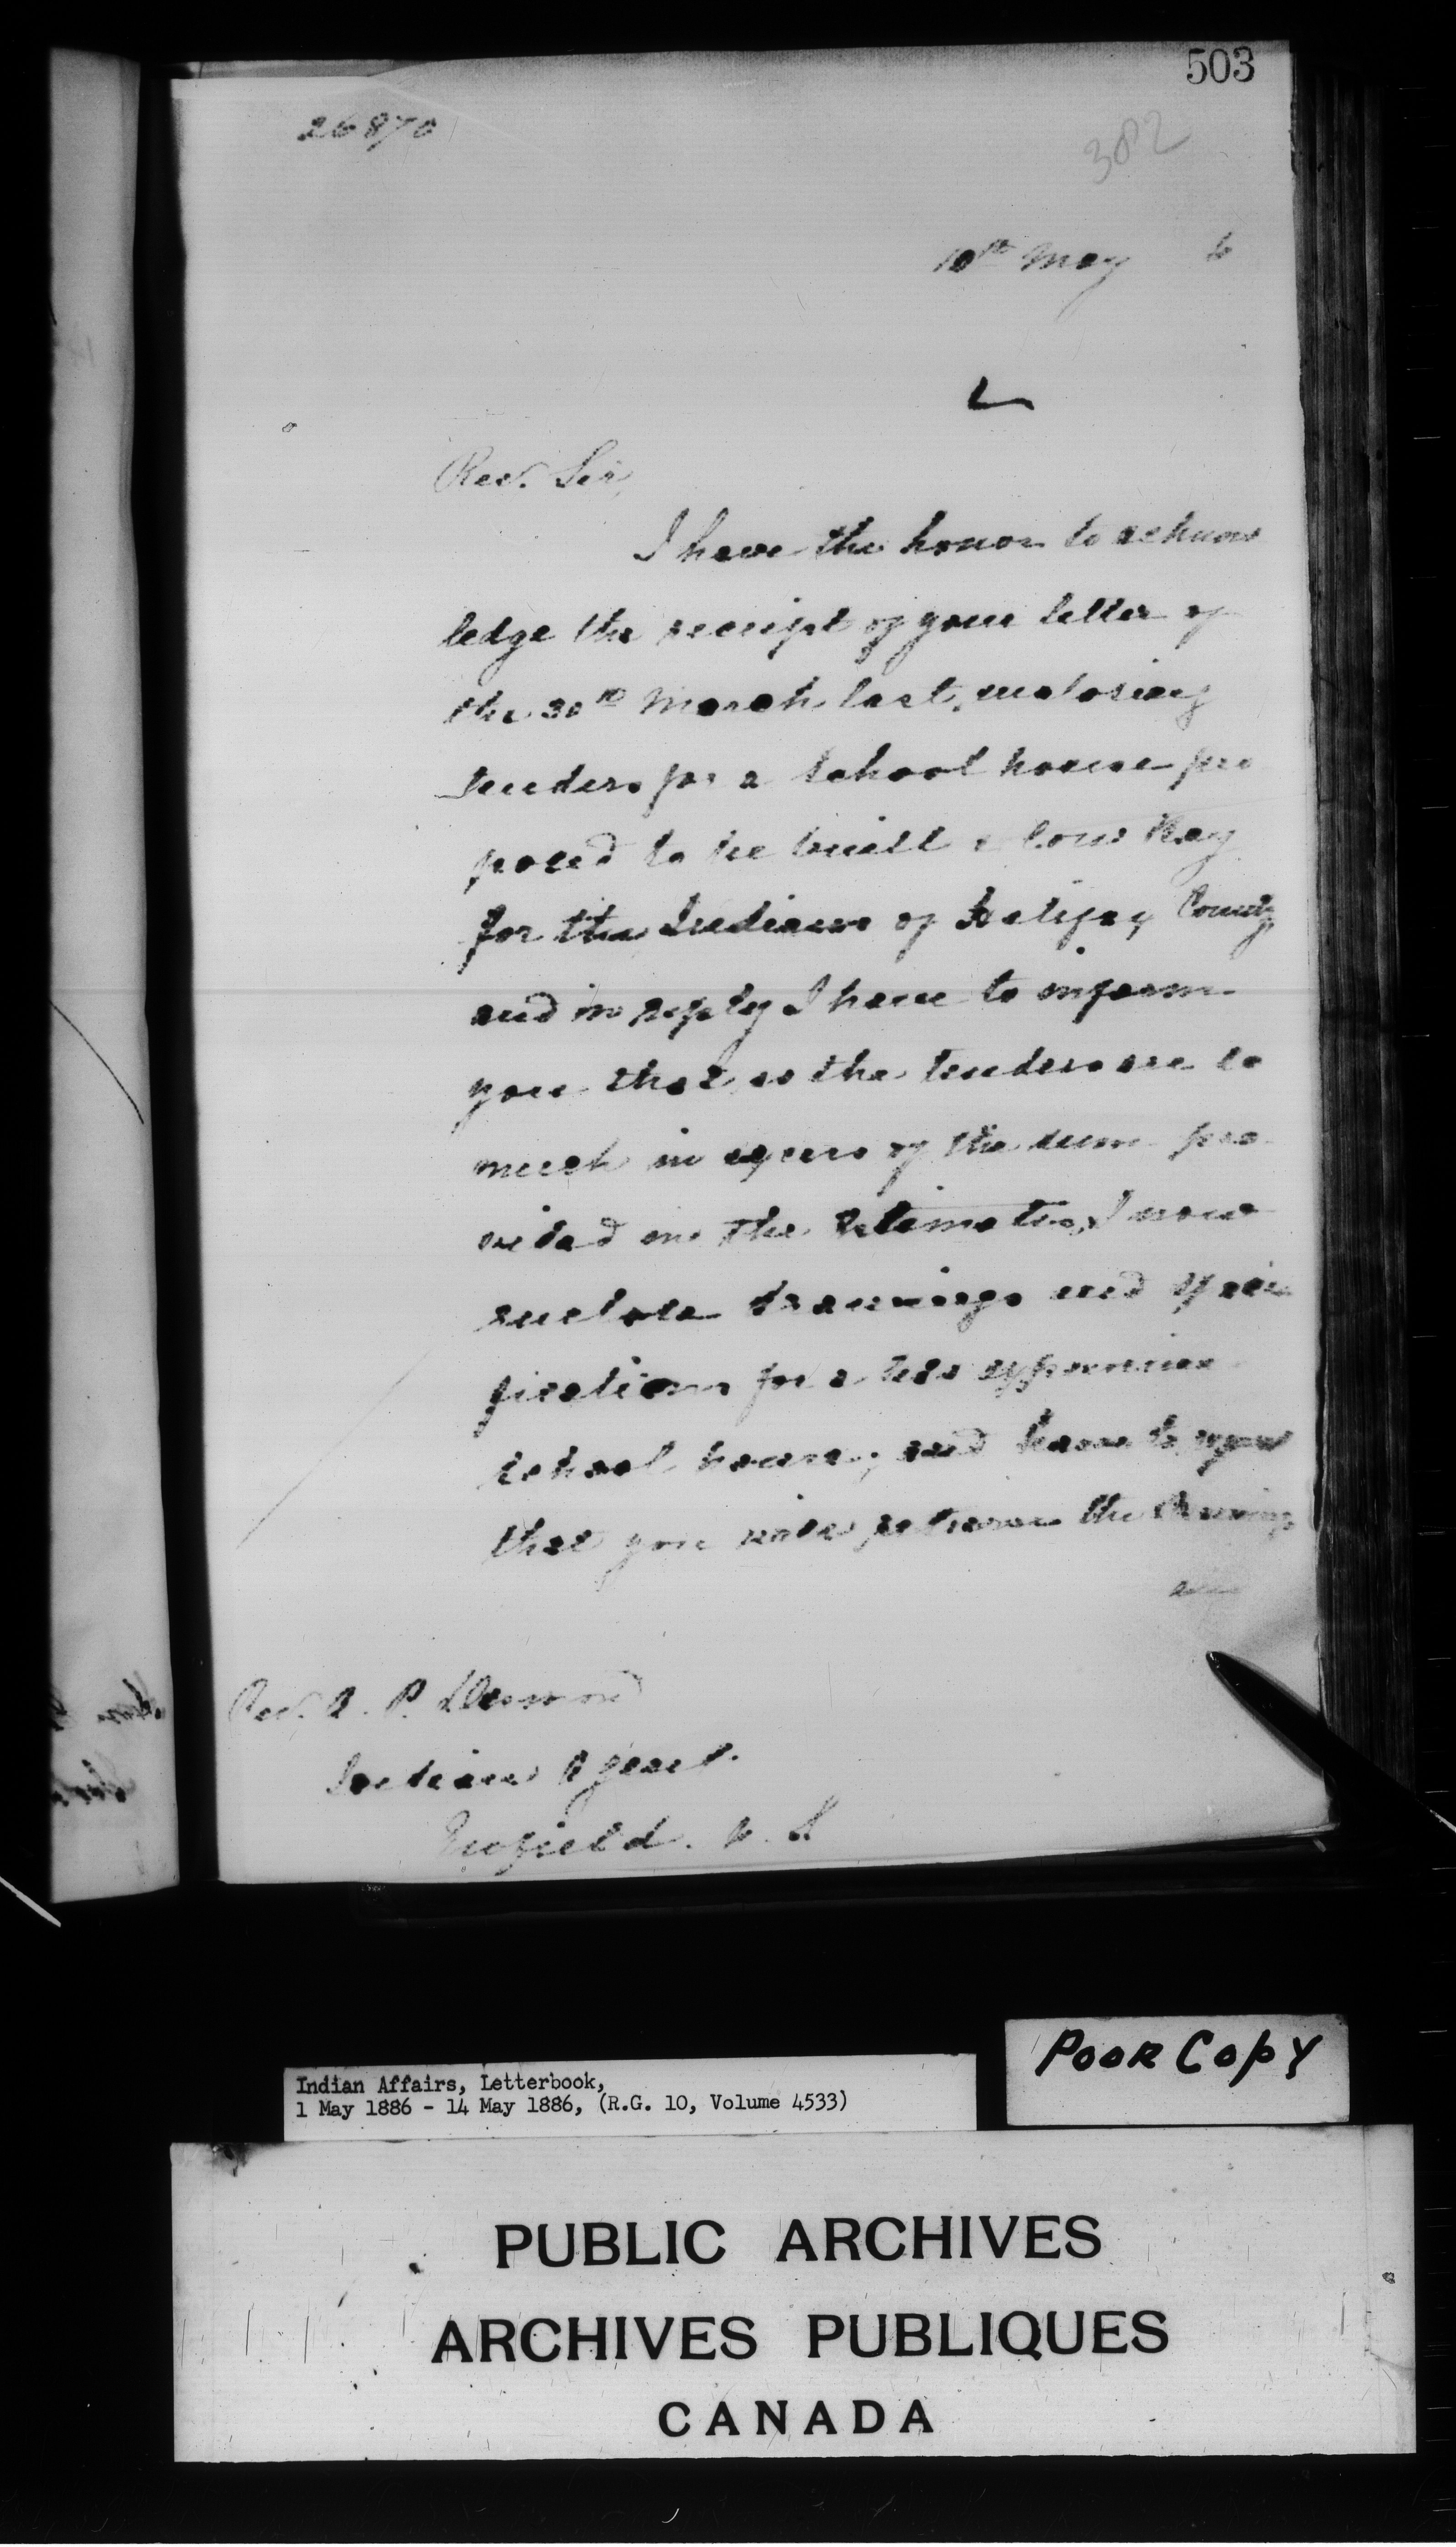 503
26870
382
10th May 6
Rev. Sir,
I have the honor to acknow
ledge the receipt of your letter of
the 30th March last, enclosing
tenders for a school house pro
posed to be built Cow Bay
for the Indians of Halifax County
and in reply I have to inform
you that as the tenders are so
much in excess of the sum pro
vided in the Estimates, I now
enclose drawings and speci
fications for a less expensive
school house; and have to request
that you will return the drawings
Rev. D. P. Desmond
Indian Agent.
Enfield. N. S
Poor Copy
Indian Affairs, Letterbook,
1 May 1886 - 14 May 1886, (R.G. 10, Volume 4533)
PUBLIC ARCHIVES
ARCHIVES PUBLIQUES
CANADA